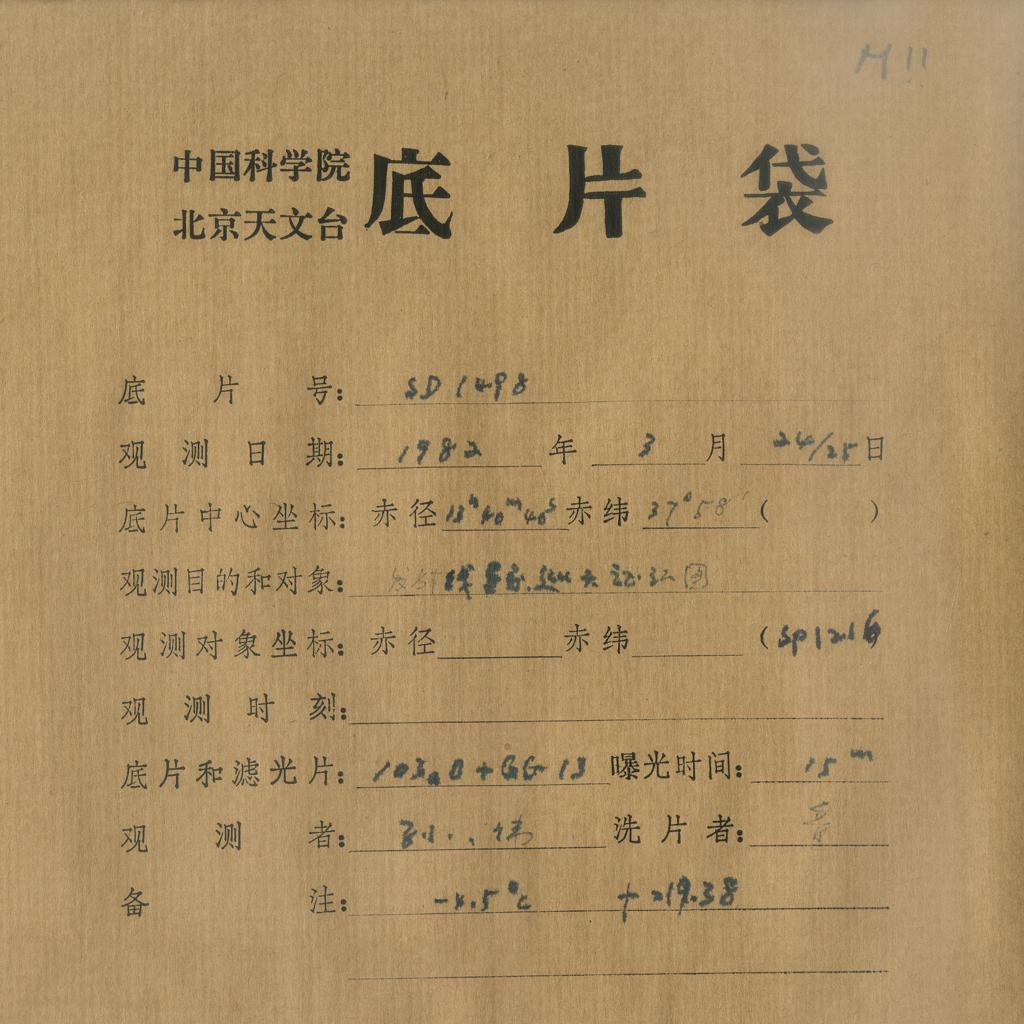 M 11
中国科学院 底片袋
北京天文台
底片号: SD 1498
观测日期: 1982 年 3 月 24/25 日
底片中心坐标: 赤径 13h40m40s 赤纬 37°58′ ( )
观测目的和对象:
观测对象坐标: 赤径 赤纬 (
观测时刻:
底片和滤光片: 103aO + GG 13 曝光时间: 15m
观测者: 洗片者:
备注: